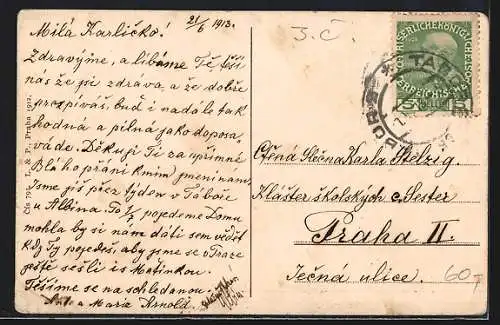 21/6 1913.
Milá Karličko!
Zdravíme, a líbáme Tě těší
nás že jsi zdráva, a že dobře
prospíváš, buď i nadále tak
hodná a pilná jako doposa-
váde. Děkuji Ti za upřímné
Blahopřání k mým jmeninám,
Jsme již přez týden v Táboře
u Albína. To 1/7 pojedeme Domu
mohla by si nám dáti sem vědět
kdy Ty pojedeš, aby jsme se v Praze
ještě sešli is Matinkou.
Těšíme se na schledanou.
a Marie Arnold
Čís. 798. L. & P., Praha 1912.
3.Č.
KAISERLICHE KÖNIGLICHE
ÖSTERREICHISCHE
5 5
TÁBOR
Ctěná Slečna Karla Stelzig.
Klášter školských c. Sester
Praha II.
Ječná ulice.
60-